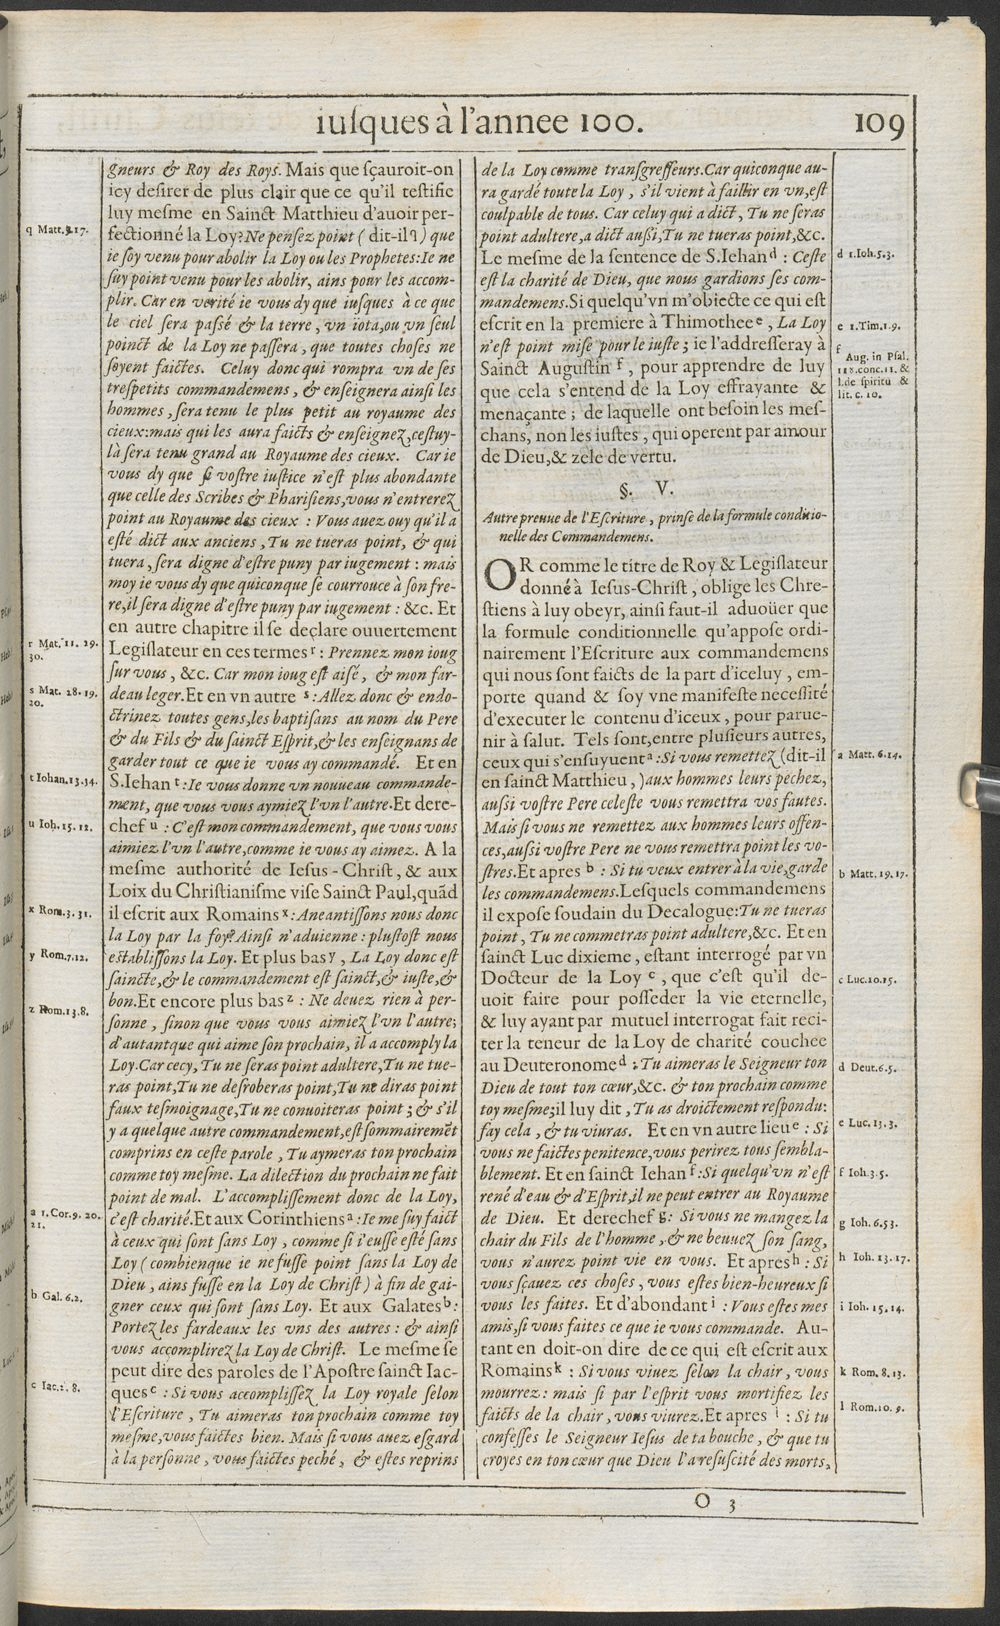 iuſques à l'annee 100.
109
gneurs & Roy des Roys. Mais que ſçauroit-on
icy deſirer de plus clair que ce qu'il teſtifie
luy meſme en Sainct Matthieu d'auoir per-
fectionné la Loy? Ne penſez point ( dit-il q ) que
ie ſoy venu pour abolir la Loy ou les Prophetes: Ie ne
ſuy point venu pour les abolir, ains pour les accom-
plir. Car en verité ie vous dy que iuſques à ce que
le ciel ſera paſſé & la terre, vn iota, ou vn ſeul
poinct de la Loy ne paſſera, que toutes choſes ne
ſoyent faictes. Celuy donc qui rompra vn de ſes
treſpetits commandemens, & enſeignera ainſi les
hommes, ſera tenu le plus petit au royaume des
cieux: mais qui les aura faicts & enſeignez, ceſtuy-
là ſera tenu grand au Royaume des cieux. Car ie
vous dy que ſi voſtre iuſtice n'eſt plus abondante
que celle des Scribes & Phariſiens, vous n'entrerez
point au Royaume des cieux : Vous auez ouy qu'il a
eſté dict aux anciens, Tu ne tueras point, & qui
tuera, ſera digne d'eſtre puny par iugement : mais
moy ie vous dy que quiconque ſe courrouce à ſon fre-
re, il ſera digne d'eſtre puny par iugement : &c. Et
en autre chapitre il ſe declare ouuertement
Legiſlateur en ces termes r : Prennez mon ioug
ſur vous, &c. Car mon ioug eſt aiſé, & mon far-
deau leger. Et en vn autre s : Allez donc & endo-
ctrinez toutes gens, les baptiſans au nom du Pere
& du Fils & du ſainct Eſprit, & les enſeignans de
garder tout ce que ie vous ay commandé. Et en
S. Iehan t : Ie vous donne vn nouueau commande-
ment, que vous vous aymiez l'vn l'autre. Et dere-
chef u : C'eſt mon commandement, que vous vous
aimiez l'vn l'autre, comme ie vous ay aimez. A la
meſme authorité de Ieſus-Chriſt, & aux
Loix du Chriſtianiſme viſe Sainct Paul, quãd
il eſcrit aux Romains x : Aneantiſſons nous donc
la Loy par la foy? Ainſi n'aduienne : pluſtoſt nous
eſtabliſſons la Loy. Et plus bas y, La Loy donc eſt
ſaincte, & le commandement eſt ſainct, & iuſte, &
bon. Et encore plus bas z : Ne deuez rien à per-
ſonne, ſinon que vous vous aimiez l'vn l'autre;
d'autant que qui aime ſon prochain, il a accomply la
Loy. Car cecy, Tu ne ſeras point adultere, Tu ne tue-
ras point, Tu ne deſroberas point, Tu ne diras point
faux teſmoignage, Tu ne conuoiteras point ; & s'il
y a quelque autre commandement, eſt ſommairemẽt
comprins en ceſte parole, Tu aymeras ton prochain
comme toy meſme. La dilection du prochain ne fait
point de mal. L'accompliſſement donc de la Loy,
c'eſt charité. Et aux Corinthiens a : Ie me ſuy faict
à ceux qui ſont ſans Loy, comme ſi i'euſſe eſté ſans
Loy ( combien que ie ne fuſſe point ſans la Loy de
Dieu, ains fuſſe en la Loy de Chriſt ) à fin de gai-
gner ceux qui ſont ſans Loy. Et aux Galates b :
Portez les fardeaux les vns des autres : & ainſi
vous accomplirez la Loy de Chriſt. Le meſme ſe
peut dire des paroles de l'Apoſtre ſainct Iac-
ques c : Si vous accompliſſez la Loy royale ſelon
l'Eſcriture, Tu aimeras ton prochain comme toy
meſme, vous faictes bien. Mais ſi vous auez eſgard
à la perſonne, vous faictes peché, & eſtes reprins
q Matt.5.17.
r Mat. 11. 29.
30.
s Mat. 28. 19.
20.
t Iohan. 13. 34.
u Ioh. 15. 12.
x Rom. 3. 31.
y Rom. 7. 12.
z Rom. 13. 8.
a 1. Cor. 9. 20.
21.
b Gal. 6. 2.
c Iac. 2. 8.
de la Loy comme tranſgreſſeurs. Car quiconque au-
ra gardé toute la Loy, s'il vient à faillir en vn, eſt
coulpable de tous. Car celuy qui a dict, Tu ne ſeras
point adultere, a dict auſſi, Tu ne tueras point, &c.
Le meſme de la ſentence de S. Iehan d : Ceſte
eſt la charité de Dieu, que nous gardions ſes com-
mandemens. Si quelqu'vn m'obiecte ce qui eſt
eſcrit en la premiere à Thimothee e, La Loy
n'eſt point miſe pour le iuſte ; ie l'addreſſeray à
Sainct Auguſtin f, pour apprendre de luy
que cela s'entend de la Loy effrayante &
menaçante ; de laquelle ont beſoin les meſ-
chans, non les iuſtes, qui operent par amour
de Dieu, & zele de vertu.
§. V.
Autre preuue de l'Eſcriture, prinſe de la formule conditio-
nelle des Commandemens.
OR comme le titre de Roy & Legiſlateur
donné à Ieſus-Chriſt, oblige les Chre-
ſtiens à luy obeyr, ainſi faut-il aduoüer que
la formule conditionnelle qu'appoſe ordi-
nairement l'Eſcriture aux commandemens
qui nous ſont faicts de la part d'iceluy, em-
porte quand & ſoy vne manifeſte neceſſité
d'executer le contenu d'iceux, pour parue-
nir à ſalut. Tels ſont, entre pluſieurs autres,
ceux qui s'enſuyuent a : Si vous remettez (dit-il
en ſainct Matthieu, ) aux hommes leurs pechez,
auſſi voſtre Pere celeſte vous remettra vos fautes.
Mais ſi vous ne remettez aux hommes leurs offen-
ces, auſſi voſtre Pere ne vous remettra point les vo-
ſtres. Et apres b : Si tu veux entrer à la vie, garde
les commandemens. Leſquels commandemens
il expoſe ſoudain du Decalogue: Tu ne tueras
point, Tu ne commetras point adultere, &c. Et en
ſainct Luc dixieme, eſtant interrogé par vn
Docteur de la Loy c, que c'eſt qu'il de-
uoit faire pour poſſeder la vie eternelle,
& luy ayant par mutuel interrogat fait reci-
ter la teneur de la Loy de charité couchee
au Deuteronome d : Tu aimeras le Seigneur ton
Dieu de tout ton cœur, &c. & ton prochain comme
toy meſme; il luy dit, Tu as droictement reſpondu:
fay cela, & tu viuras. Et en vn autre lieu e : Si
vous ne faictes penitence, vous perirez tous ſembla-
blement. Et en ſainct Iehan f : Si quelqu'vn n'eſt
rené d'eau & d'Eſprit, il ne peut entrer au Royaume
de Dieu. Et derechef g : Si vous ne mangez la
chair du Fils de l'homme, & ne beuuez ſon ſang,
vous n'aurez point vie en vous. Et apres h : Si
vous ſçauez ces choſes, vous eſtes bien-heureux ſi
vous les faites. Et d'abondant i : Vous eſtes mes
amis, ſi vous faites ce que ie vous commande. Au-
tant en doit-on dire de ce qui eſt eſcrit aux
Romains k : Si vous viuez ſelon la chair, vous
mourrez : mais ſi par l'eſprit vous mortifiez les
faicts de la chair, vous viurez. Et apres l : Si tu
confeſſes le Seigneur Ieſus de ta bouche, & que tu
croyes en ton cœur que Dieu l'a reſuſcité des morts,
d 1. Ioh. 5. 3.
e 1. Tim. 1. 9.
f
Aug. in Pſal.
118. conc. 11. &
l. de ſpiritu &
lit. c. 10.
a Matt. 6. 14.
b Matt. 19. 17.
c Luc. 10. 25.
d Deut. 6. 5.
e Luc. 13. 3.
f Ioh. 3. 5.
g Ioh. 6. 53.
h Ioh. 13. 17.
i Ioh. 15. 14.
k Rom. 8. 13.
l Rom. 10. 9.
O 3